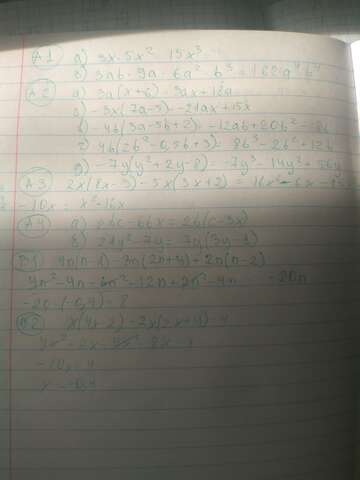 А.1 а) 3x · 5x² 15x³
б) 3ab · 9a · 6a² · b³ = 162a⁴b⁴
А.2 а) 3a(x+6) = 3ax + 18a
б) -3x(7a-5) = -21ax + 15x
в) -4b(3a-5b+2) = -12ab + 20b² - 8b
г) 4b(2b² - 0,5b + 3) = 8b³ - 2b² + 12b
д) -7y(y² + 2y - 8) = -7y³ - 14y² + 56y
А.3 2x(8x-3) - 5x(3x+2) = 16x² - 6x - 15x²
-10x = x² - 16x
А.4 а) 2bc - 6bx = 2b(c-3x)
б) 21y² - 7y = 7y(3y-1)
4n(n-1) - 3n(2n+4) + 2n(n-2)
4n² - 4n - 6n² - 12n + 2n² - 4n -20n
x(4x+2) - 2x(2x+4)
-10x = 4
x = -0,4